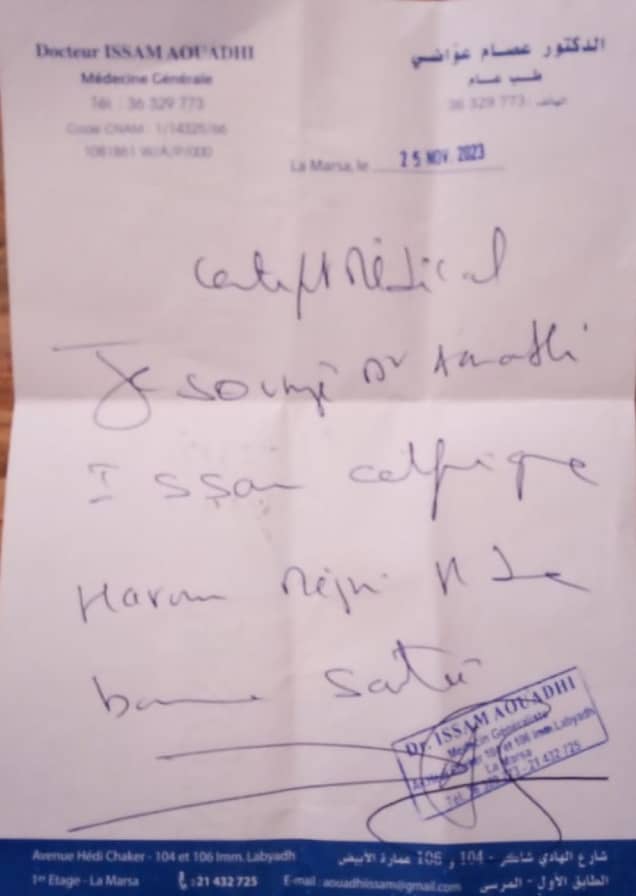 Docteur ISSAM AOUADHI
Médecine Générale
Tél. : 36 329 773
Code CNAM : 1/14325/66
1081861 W/A/P/000
الدكتور عصام عوّاضي
طب عام
الهاتف : 36 329 773
La Marsa, le 25 NOV. 2023
Certift Médical
Je sousigé Dr Aouadhi
Issam
Haroun
bonne Santé
Dr. ISSAM AOUADHI
Médecin Généraliste
104 et 106 Imm. Labyadh
La Marsa
Tél. 36 329 773 - 21 432 725
Avenue Hédi Chaker - 104 et 106 Imm. Labyadh
شارع الهادي شاكر - 104 و 106 عمارة الأبيض
1er Etage - La Marsa
21 432 725
E-mail : aouadhiissam@gmail.com
الطابق الأول - المرسى